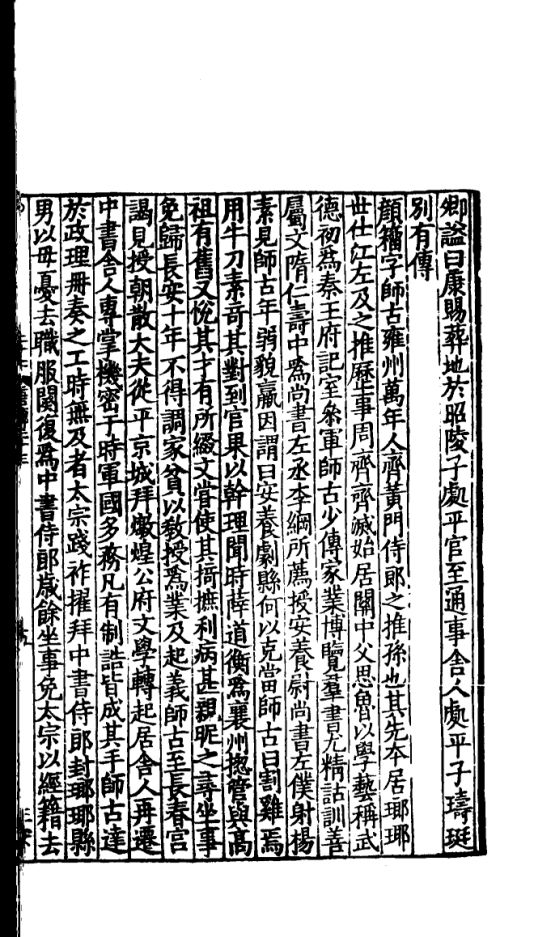 卿謚曰康賜葬地於昭陵子處平官至通事舍人處平子璹珽
別有傳
顔籕字師古雍州萬年人齊黃門侍郎之推孫也其先本居瑯琊
世仕江左及之推歷事周齊齊滅始居關中父思魯以學藝稱武
德初爲秦王府記室叅軍師古少傳家業博覽羣書尤精詁訓善
屬文隋仁壽中爲尚書左丞李綱所薦授安養尉尚書左僕射楊
素見師古年弱貌羸因謂曰安養劇縣何以克當師古曰割雞焉
用牛刀素竒其對到官果以幹理聞時薛道衡爲襄州揔管與高
祖有舊又悅其才有所綴文甞使其掎摭利病甚親昵之尋坐事
免歸長安十年不得調家貧以敎授爲業及起義師古至長春宮
謁見授朝散大夫從平京城拜燉煌公府文學轉起居舍人再遷
中書舍人專掌機密于時軍國多務凡有制誥皆成其手師古達
於政理冊奏之工時無及者太宗踐祚擢拜中書侍郎封瑯琊縣
男以母憂去職服闋復爲中書侍郎歲餘坐事免太宗以經籍去